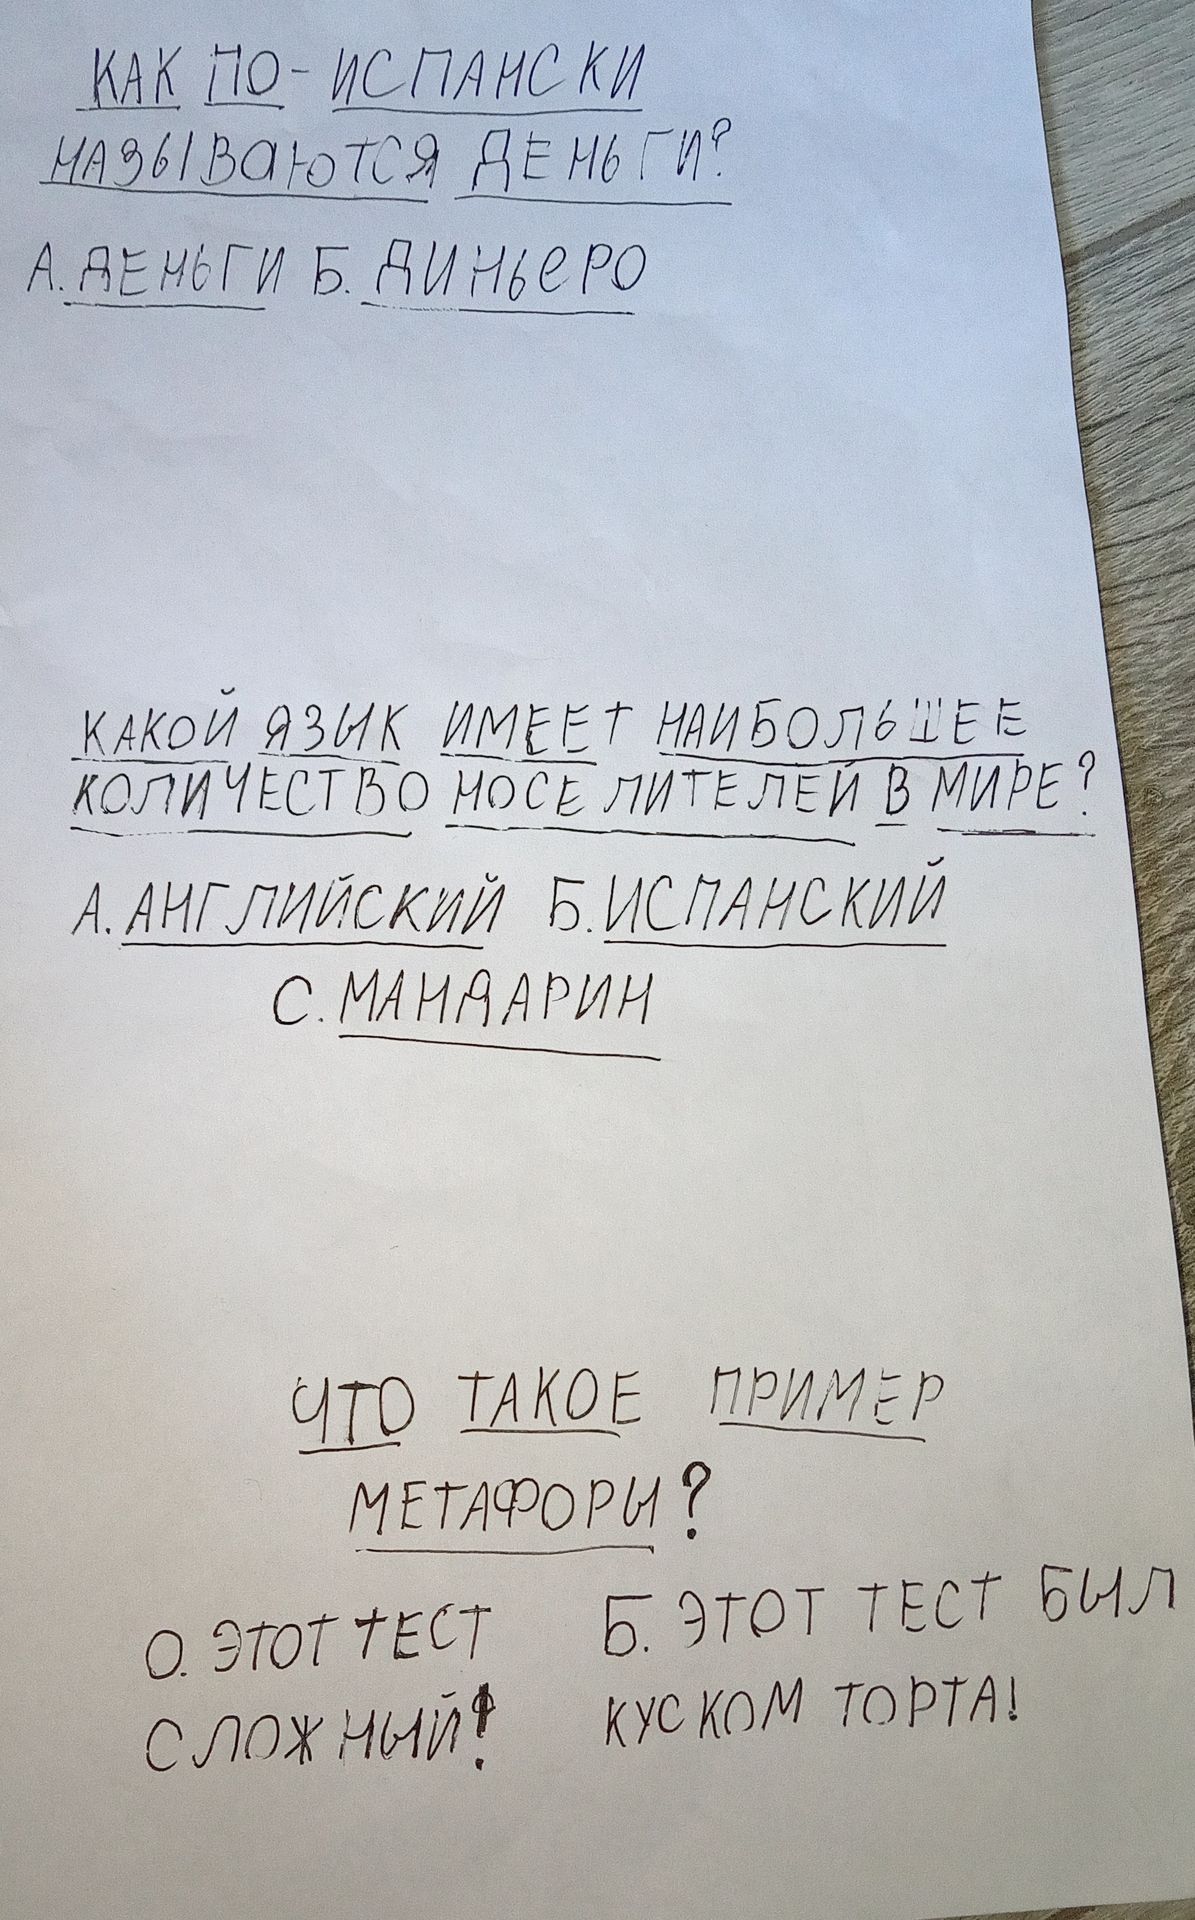 КАК ПО-ИСПАНСКИ
НАЗЫВАЮТСЯ ДЕНЬГИ?
А. ДЕНЬГИ Б. ДИНЬЕРО
КАКОЙ ЯЗЫК ИМЕЕТ НАИБОЛЬШЕЕ
КОЛИЧЕСТВО НОСЕЛИТЕЛЕЙ В МИРЕ?
А. АНГЛИЙСКИЙ Б. ИСПАНСКИЙ
С. МАНДАРИН
ЧТО ТАКОЕ ПРИМЕР
МЕТАФОРЫ?
О. ЭТОТ ТЕСТ Б. ЭТОТ ТЕСТ БЫЛ
СЛОЖНЫЙ! КУСКОМ ТОРТА!